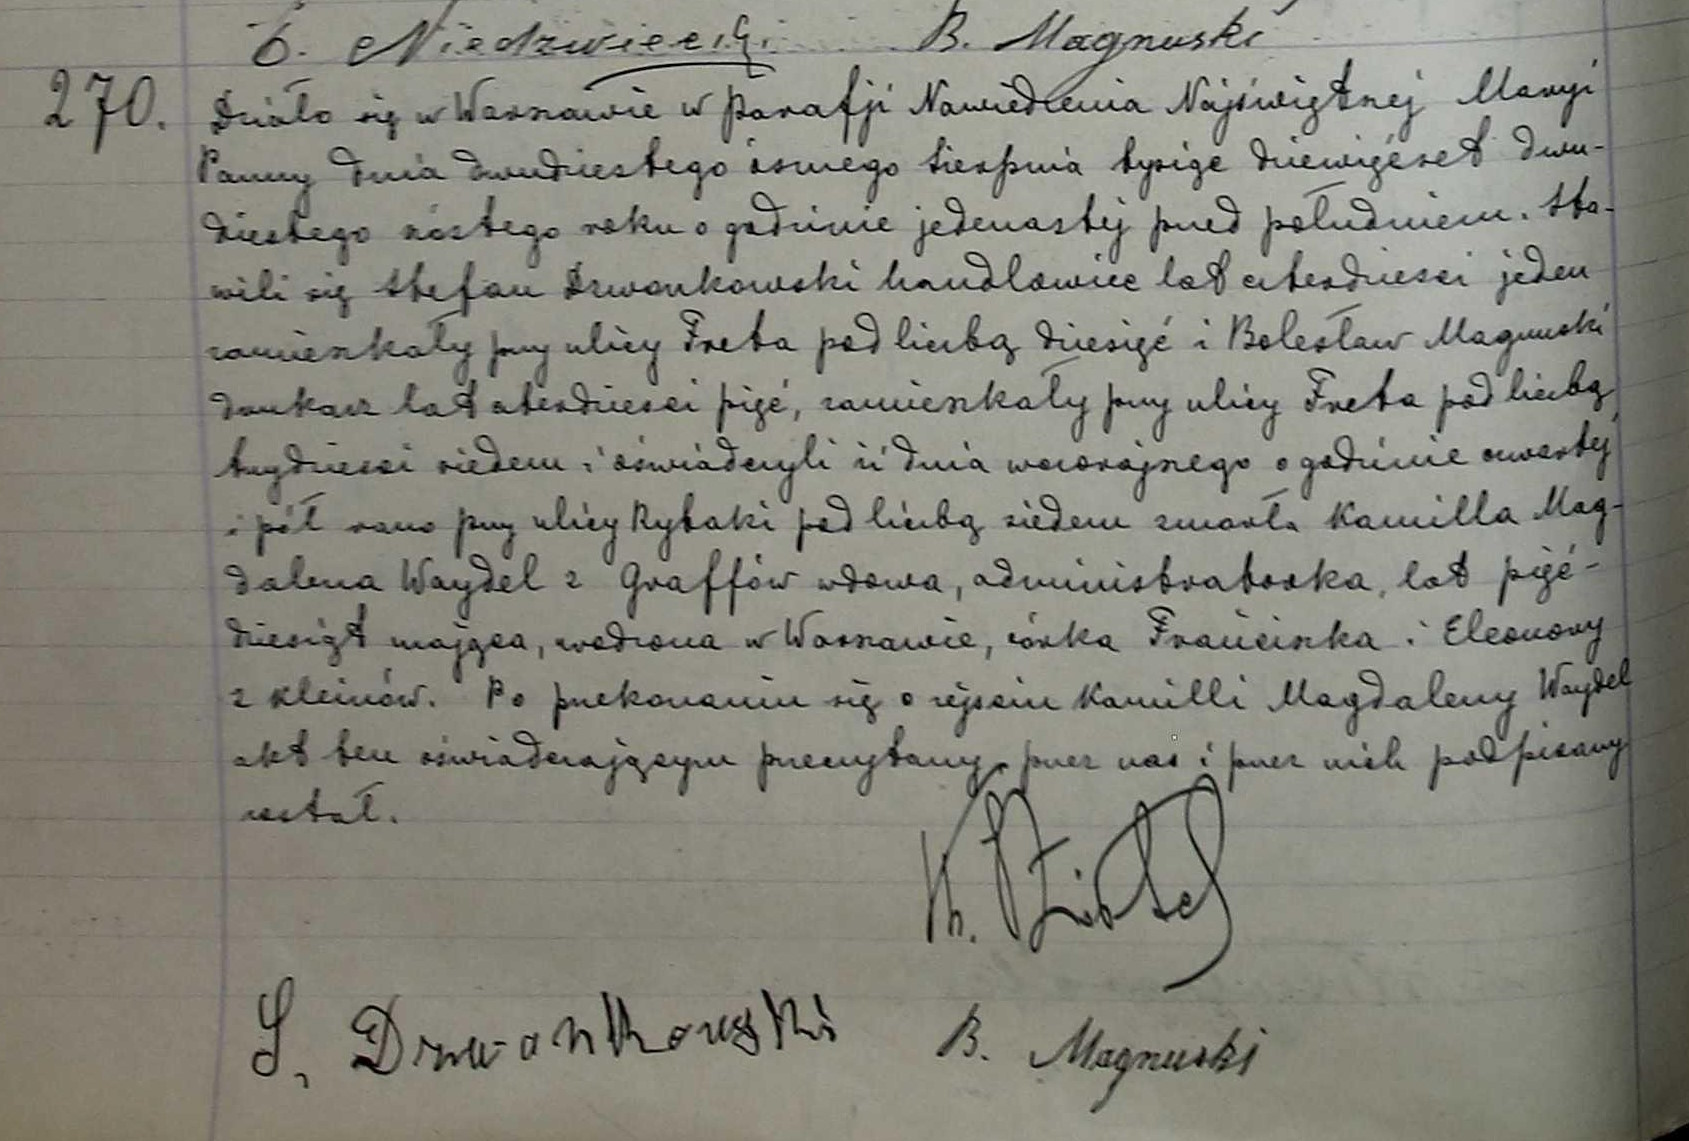 Niedzwiecki B. Magnuski
270. Działo się w Warszawie w Parafji Nawiedzenia Najświętszej Maryi
Panny dnia dwudziestego ósmego sierpnia tysiąc dziewięćset dwu-
dziestego szóstego roku o godzinie jedenastej przed południem. Sta-
wili się Stefan Dzwonkowski handlowiec lat czterdzieści jeden
zamieszkały przy ulicy Freta pod liczbą dziesięć i Bolesław Magnuski
drukarz lat czterdzieści pięć, zamieszkały przy ulicy Freta pod liczbą
trzydzieści siedem i oświadczyli iż dnia wczorajszego o godzinie czwartej
i pół rano przy ulicy Rybaki pod liczbą siedem zmarła Kamilla Mag-
dalena Waydel z Graffów wdowa, administratorka, lat pięć-
dziesiąt mająca, urodzona w Warszawie, córka Franciszka i Eleonory
z Kleinów. Po przekonaniu się o zejściu Kamilli Magdaleny Waydel
akt ten oświadczającym przeczytany, przez nas i przez nich podpisany
został.
S. Dzwonkowski B. Magnuski